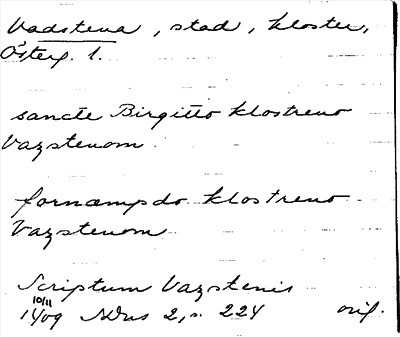 Vadstena, stad, kloster,
Österg. l.
sancte Birgitto klostreno
Vazstenom
fornæmpdo klostreno
Vazstenom
Scriptum Vazstenis
10/11
1409 NDns 2, s. 224 orig.